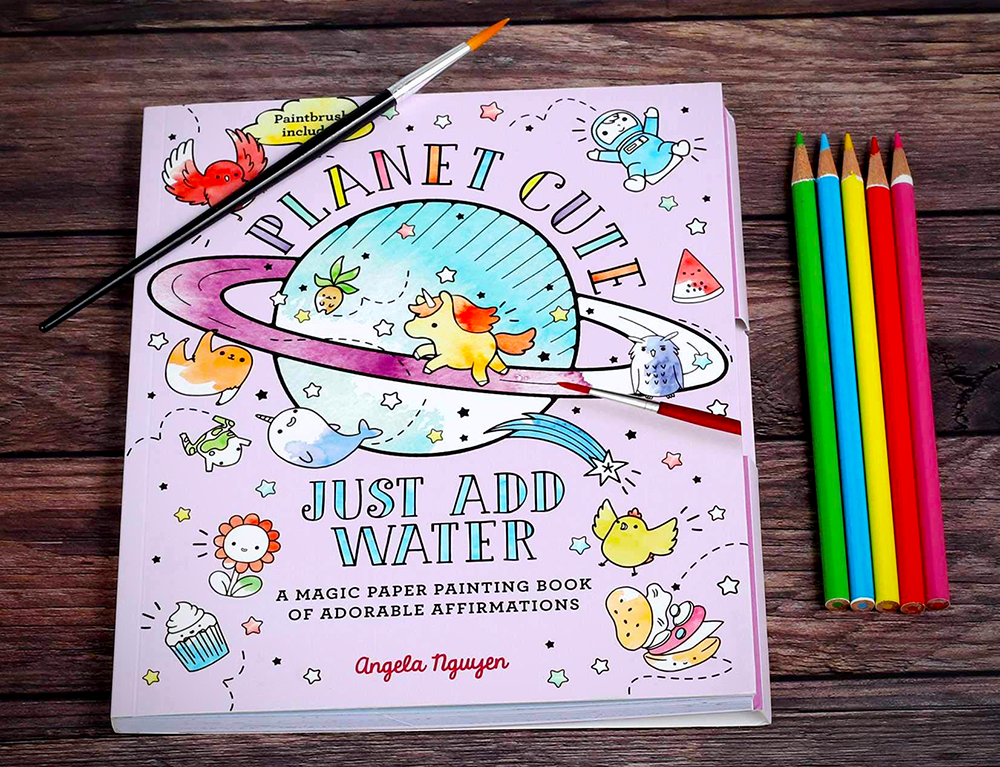 Paintbrush
PLANET CUTE
JUST ADD
WATER
A MAGIC PAPER PAINTING BOOK
OF ADORABLE AFFIRMATIONS
Angela Nguyen